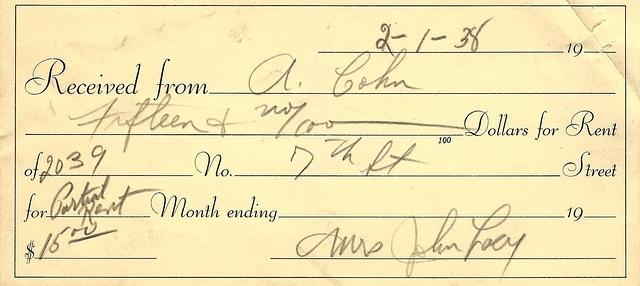 2-1-38 19
Received from A. Cohn
Fifteen & no/100 100 Dollars for Rent
of 2039 No. 7th St Street
for Partial Rent Month ending 19
$ 15.00 Mrs John